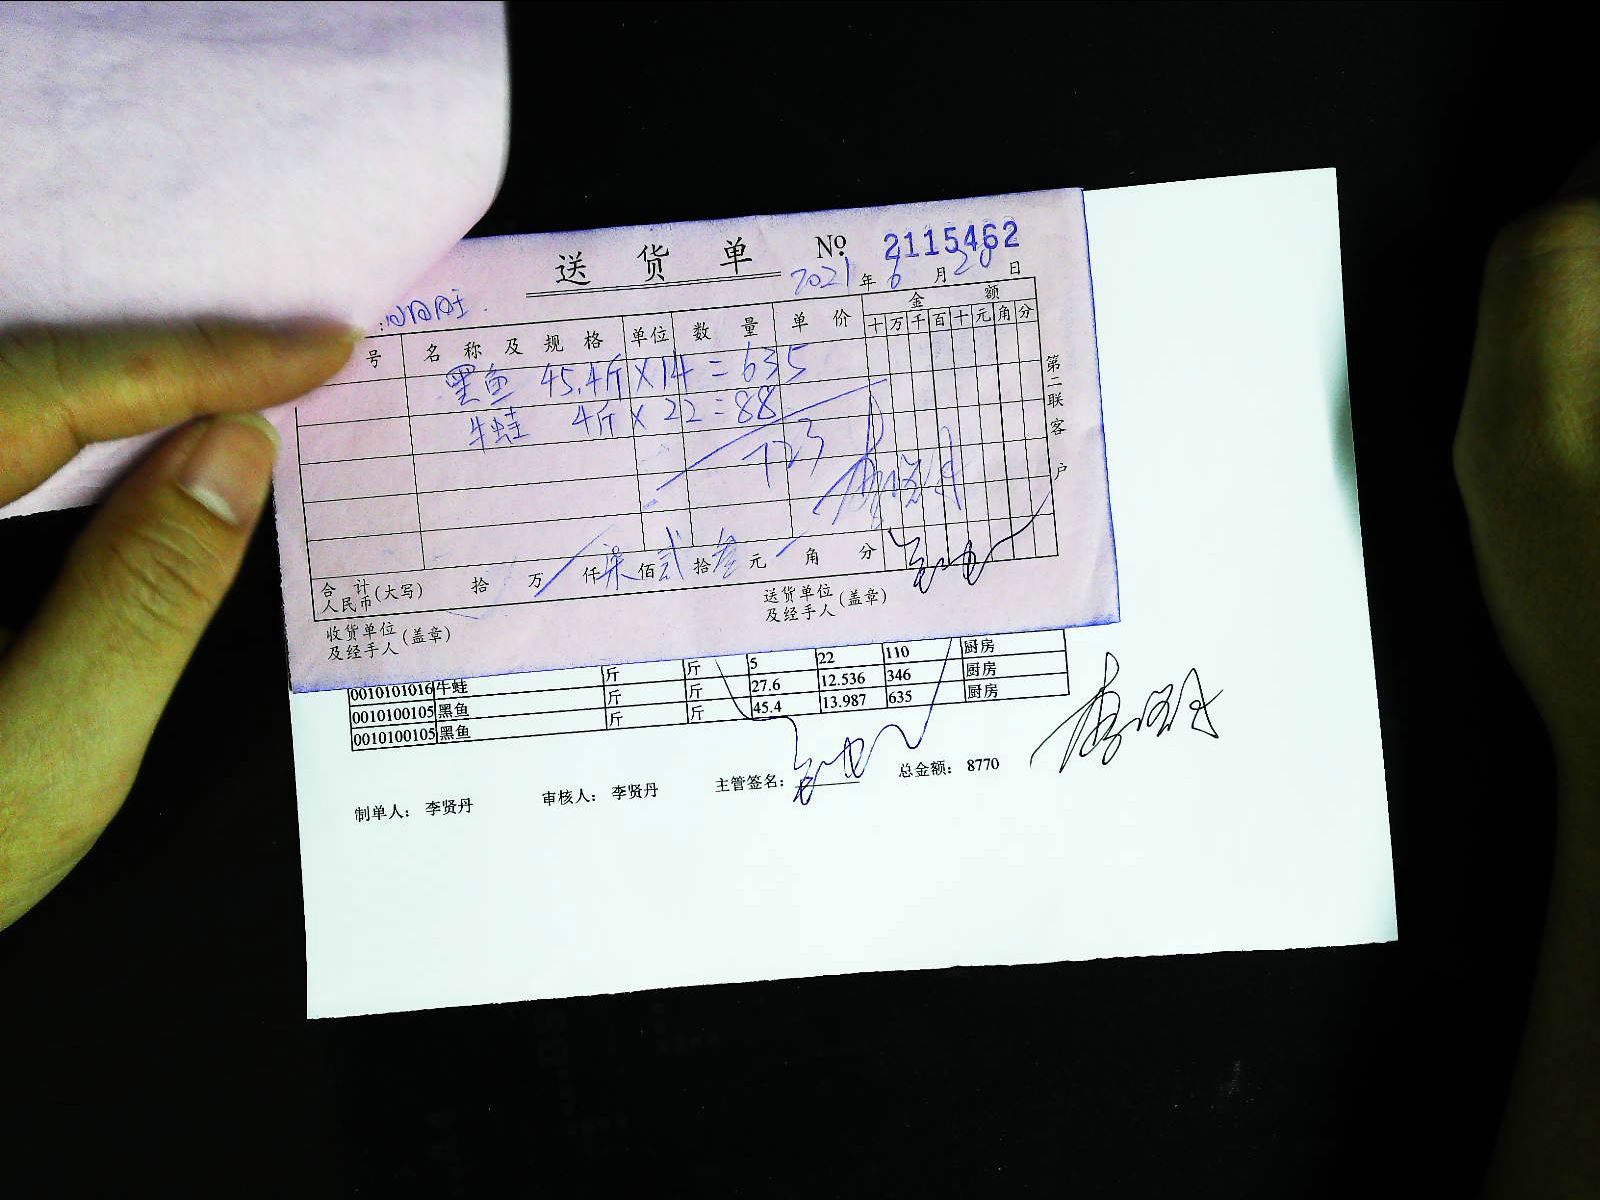 送货单 No 2115462
2021年6月20日
号 名称及规格 单位 数量 单价 金额
十万千百十元角分
黑鱼 45.4斤×14=635
牛蛙 4斤×22=88
723
第二联客户
合计人民币(大写) 拾 万 仟柒佰贰拾叁元 角 分
收货单位及经手人(盖章) 送货单位及经手人(盖章)
0010101016 牛蛙 斤 斤 5 22 110 厨房
0010100105 黑鱼 斤 斤 27.6 12.536 346 厨房
0010100105 黑鱼 斤 斤 45.4 13.987 635 厨房
制单人: 李贤丹 审核人: 李贤丹 主管签名: 总金额: 8770
李贤丹